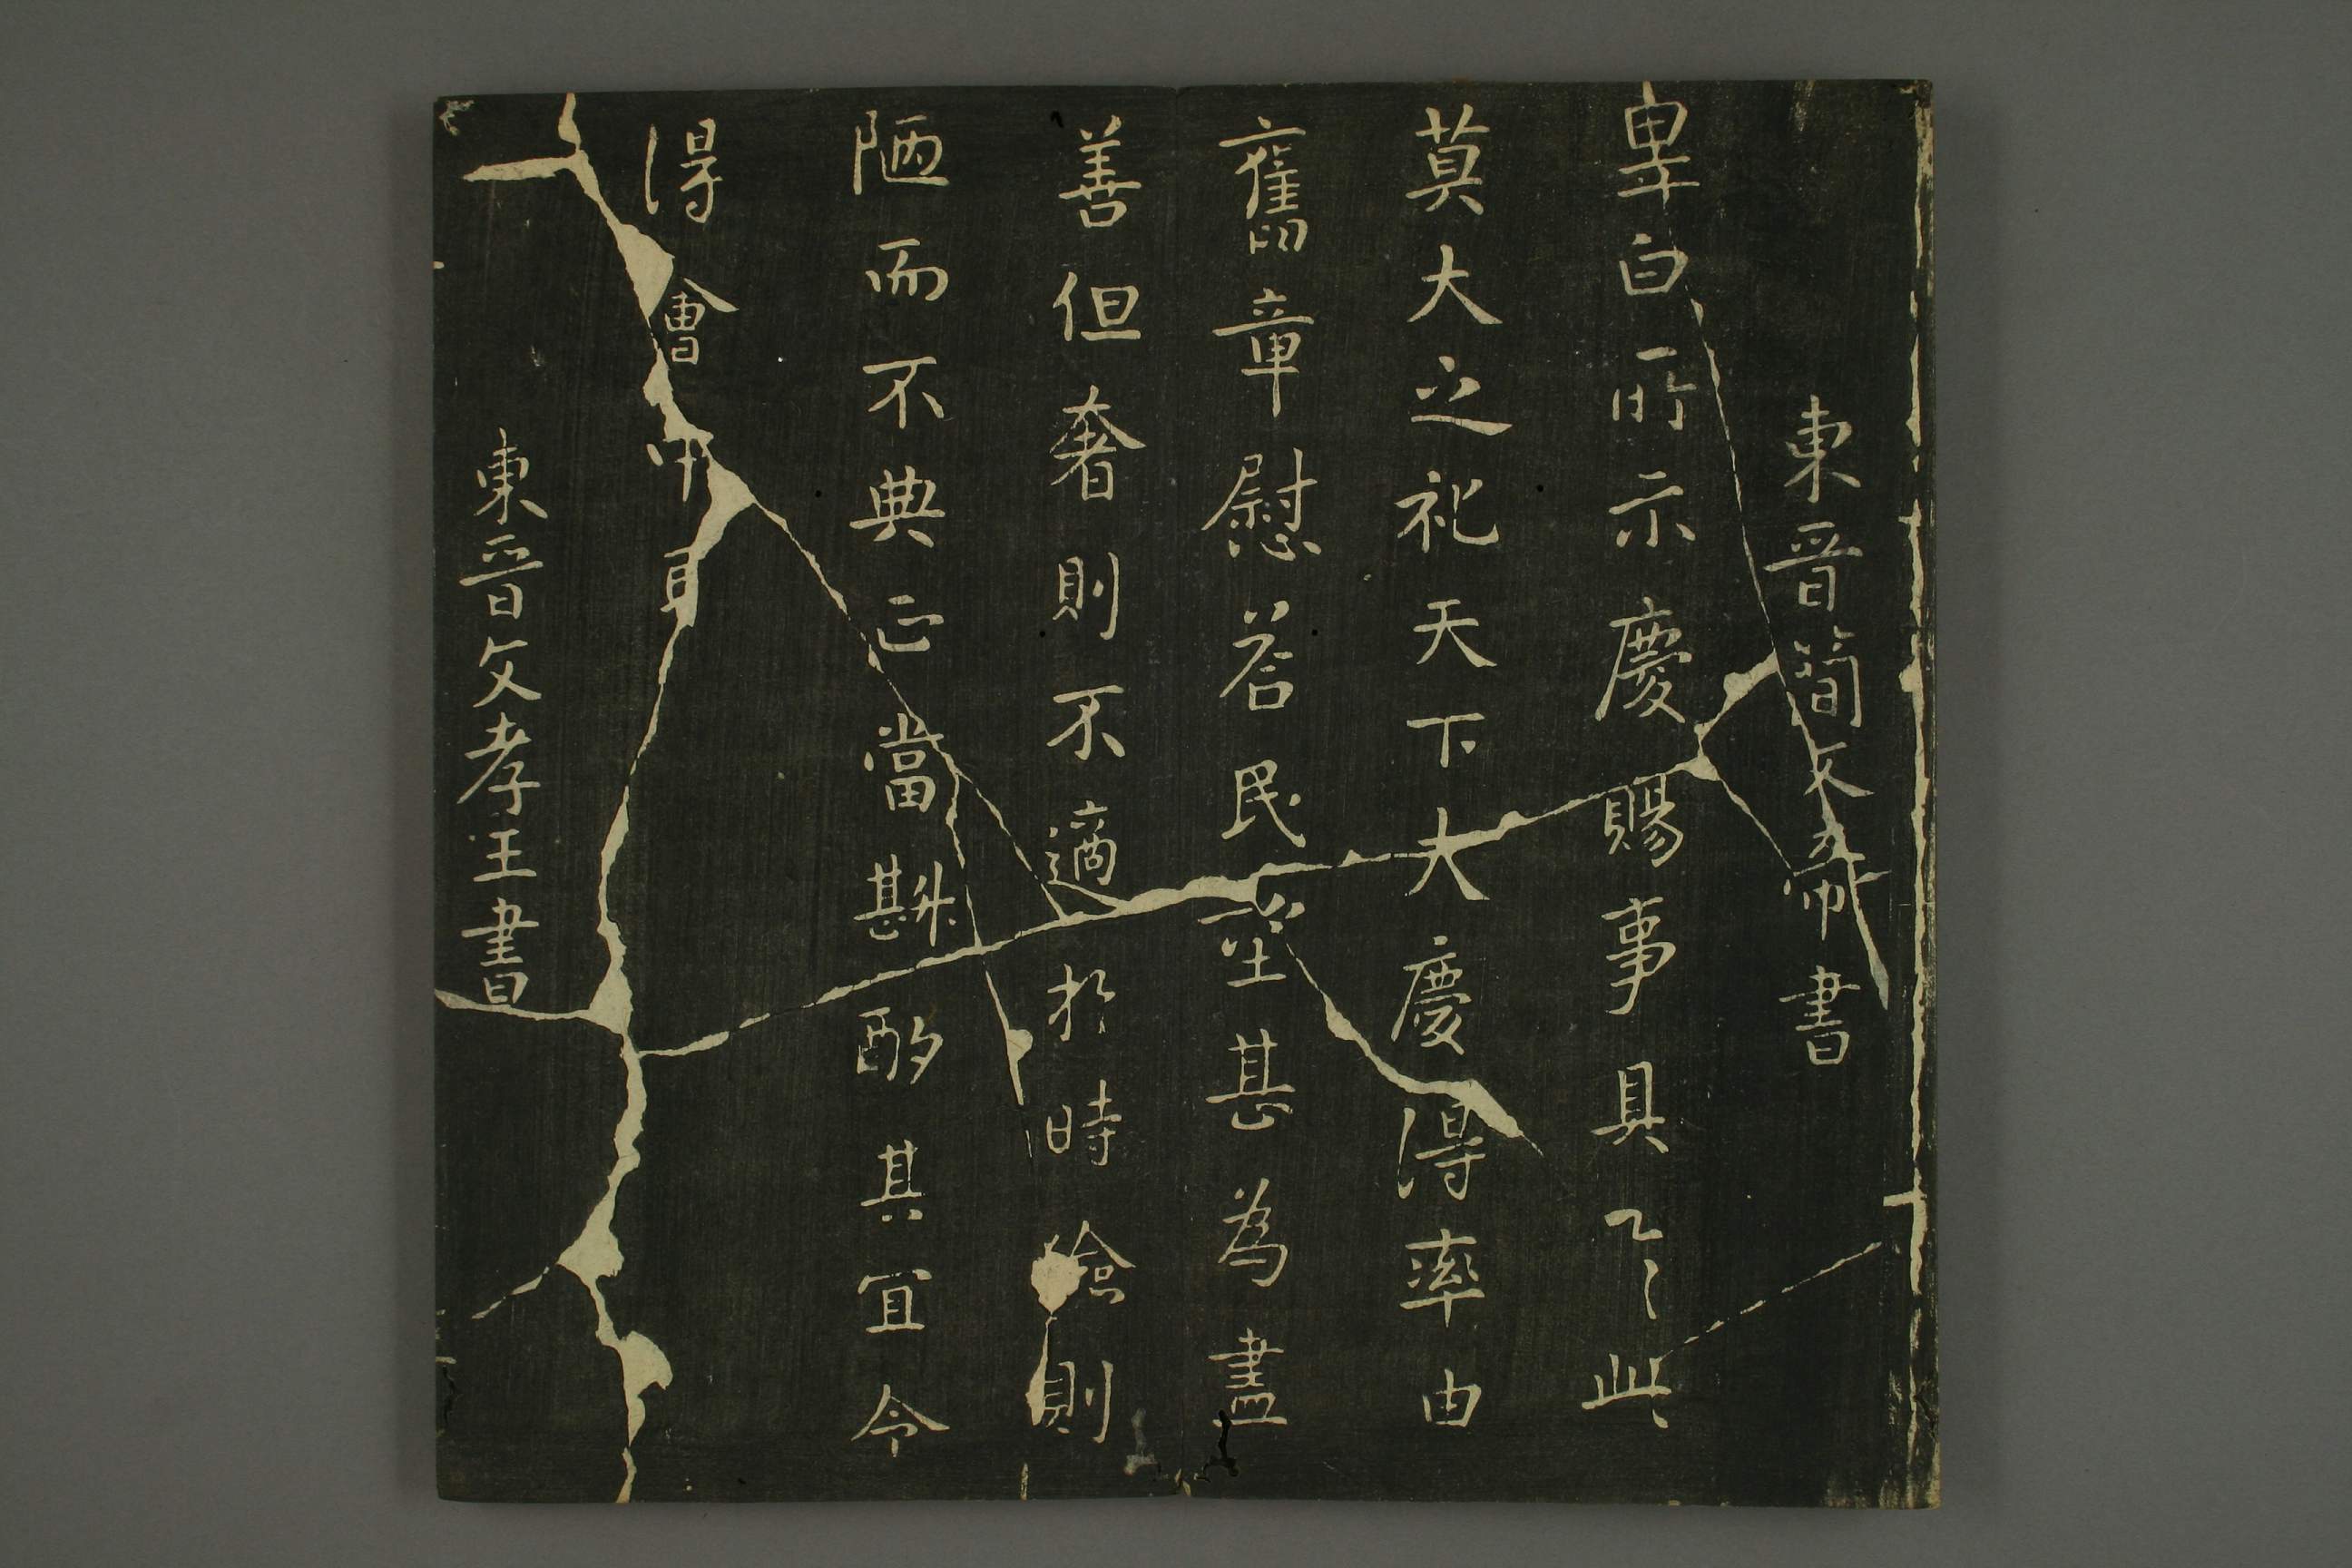 東晉簡文帝書
卑白所示慶賜事具乙々此
莫大之祀天下大慶得率由
舊章慰荅民望甚為盡
善但奢則不適於時儉則
陋而不典正當斟酌其宜令
得會中耳
東晉文孝王書